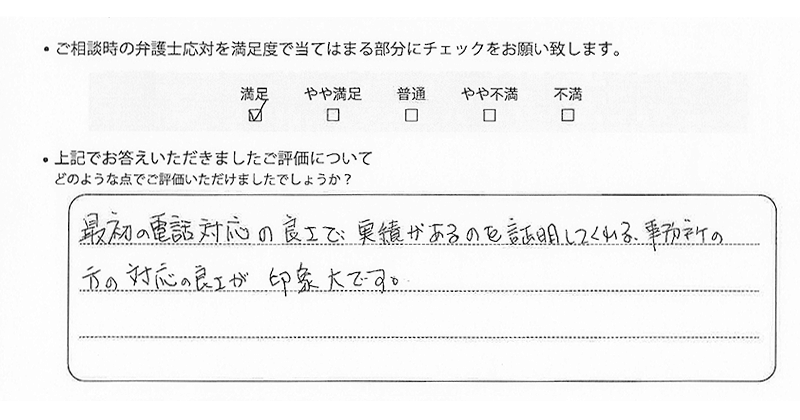 ・ご相談時の弁護士応対を満足度で当てはまる部分にチェックをお願い致します。
満足 やや満足 普通 やや不満 不満
☑ □ □ □ □
・上記でお答えいただきましたご評価について
どのような点でご評価いただけましたでしょうか？
最初の電話対応の良さで、実績があるのを説明してくれる、事務所の
方の対応の良さが 印象大です。